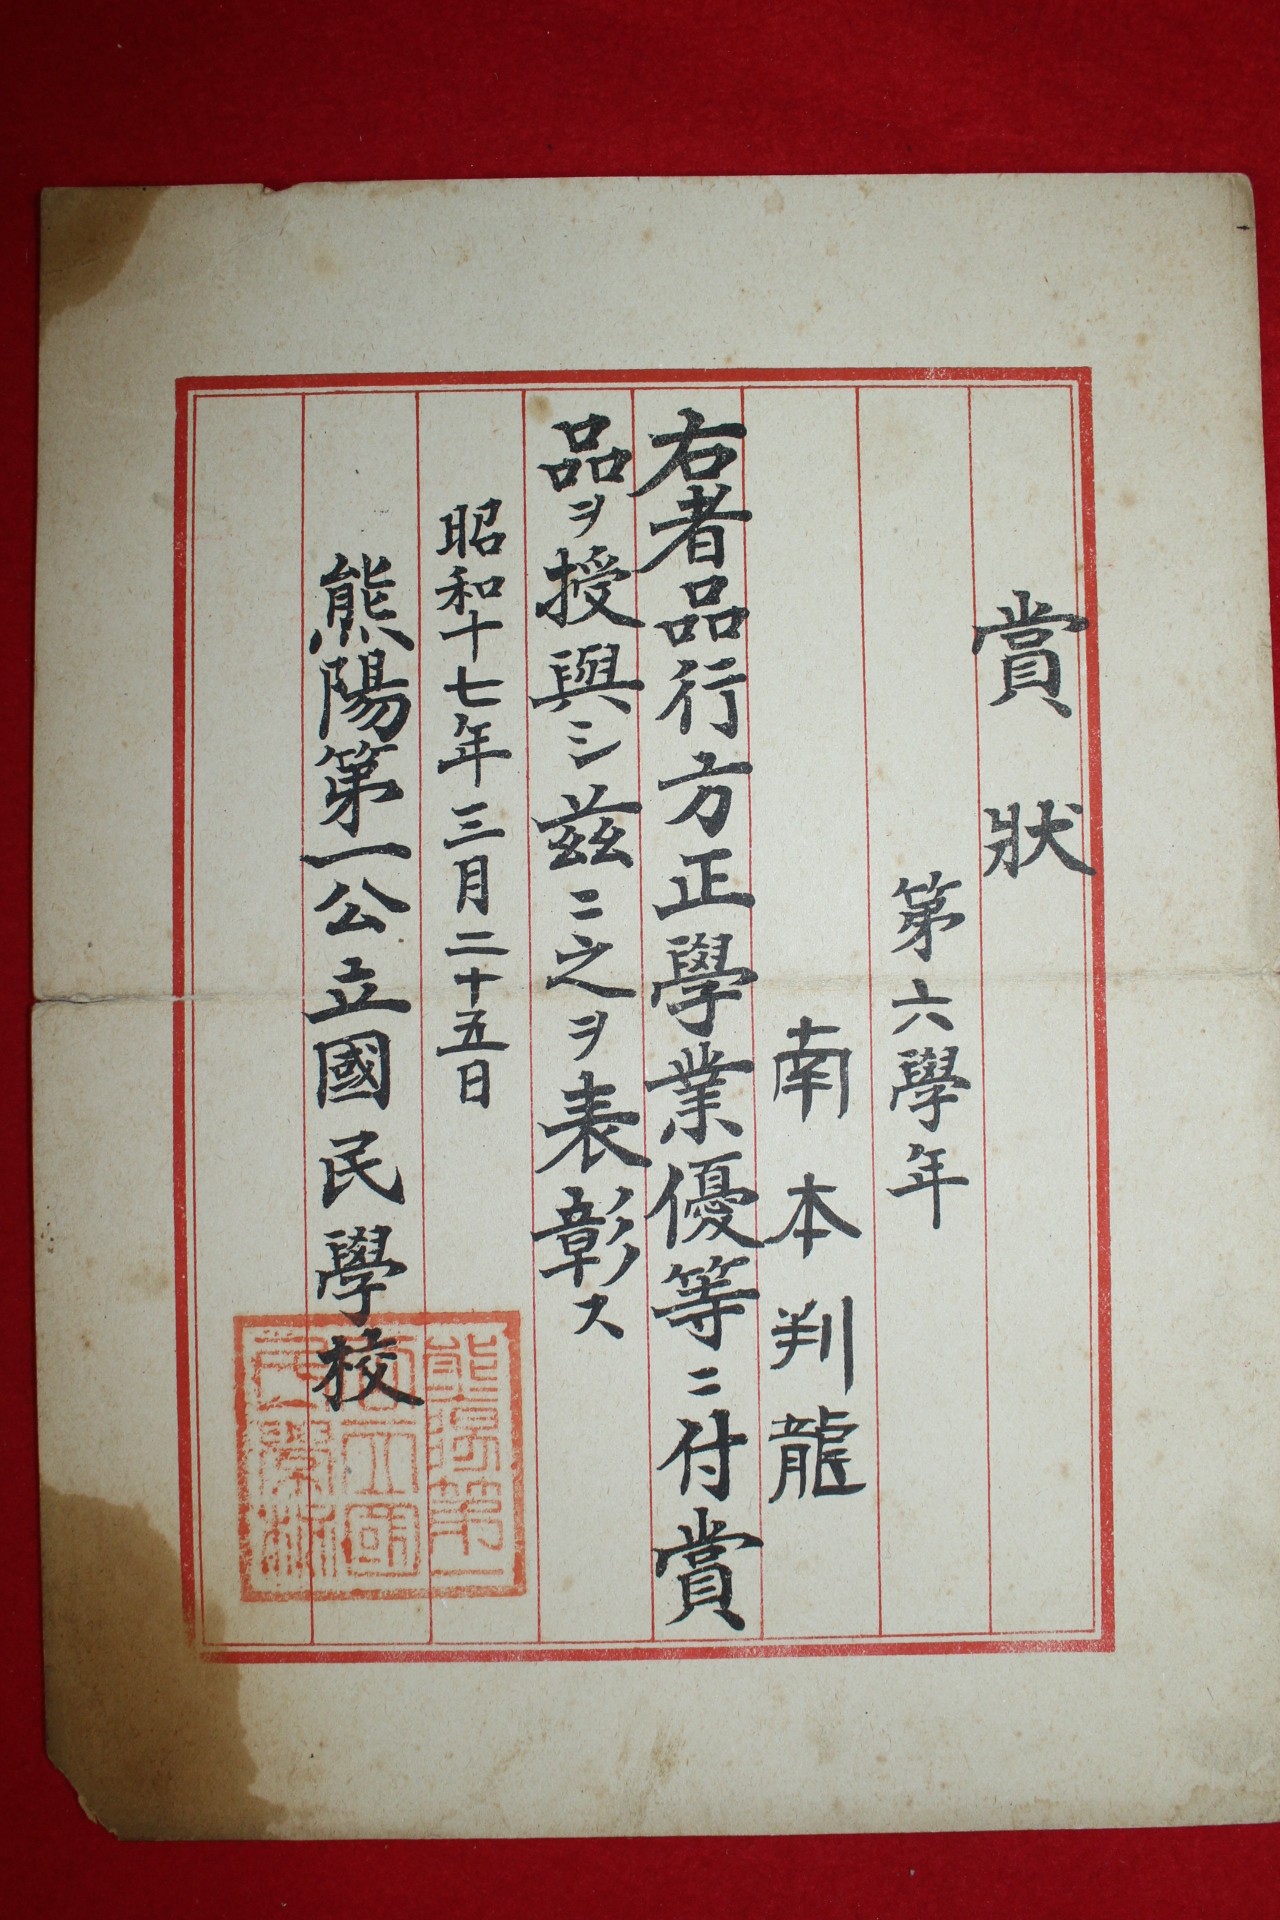 賞狀
第六學年
南本判龍
右者品行方正學業優等ニ付賞
品ヲ授與シ茲ニ之ヲ表彰ス
昭和十七年三月二十五日
熊陽第一公立國民學校
熊陽第一
公立國
民學校